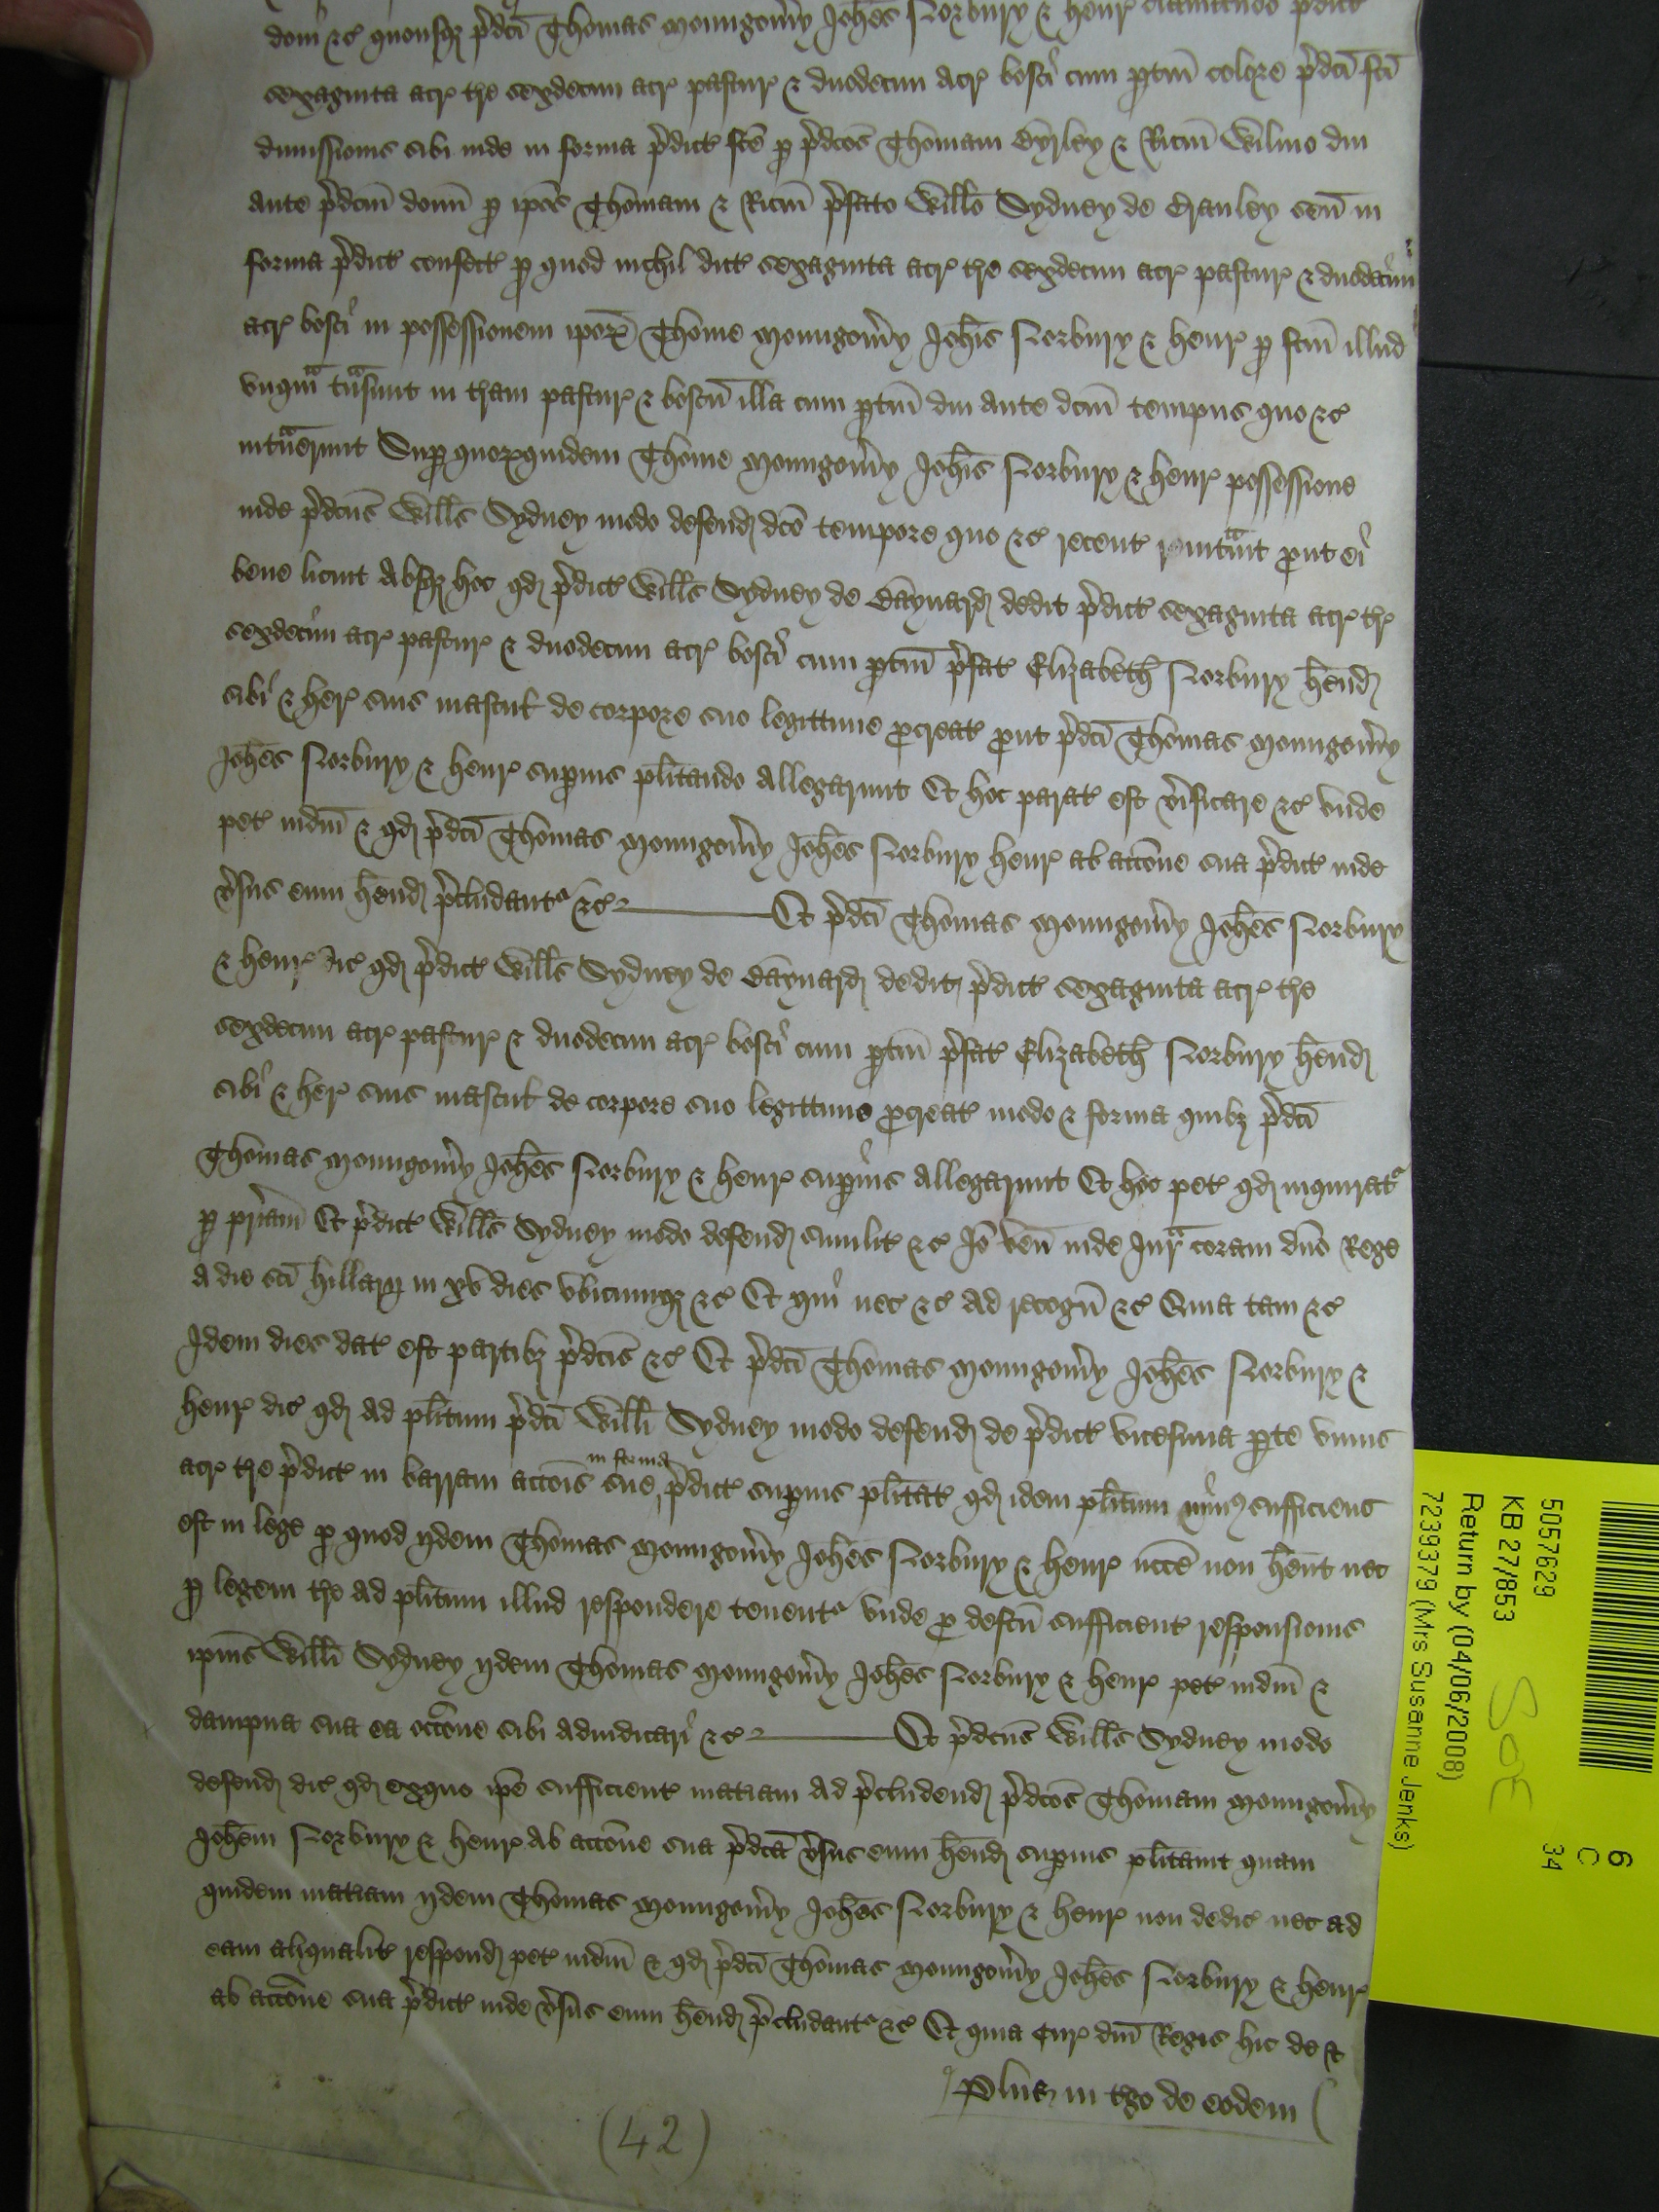 dom̄ &c quousqȝ p̄dc̄i Thomas Mountgom̄y Joh̄es Norbury & Henr̄ p̄dict
sexaginta acr̄ t̄re sexdecim acr̄ pastur̄ & duodecim acr̄ bosci cum ptin̄ colore p̄dc̄i fc̄i
dimissionis sibi inde in forma p̄dict fc̄e p p̄dc̄os Thomam Dyrley & Ric̄m Wilmo diu
ante p̄dc̄m donū p ip̄os Thomam & Ric̄m p̄fato Will̄o Sydney de Cranley sen̄ in
forma p̄dict confect p quod nichil dict sexaginta acr̄ t̄re sexdecim acr̄ pastur̄ & duodecim
acr̄ bosci in possessionem ip̄oꝝ Thome Mountgom̄y Joh̄is Norbury & Henr̄ p fc̄m illud
unqᵃm tᵃnsiuit in t̄ram pastur̄ & boscū illa cum ptin̄ diu ante dc̄m tempus quo &c
intᵃuerunt Sup quoꝝquidem Thome Mountgom̄y Joh̄is Norbury & Henr̄ possessione
inde p̄dc̄us Will̄s Sydney modo defend dc̄o tempore quo &c recent reintᵃuit put ei
bene licuit Absqȝ hoc qd p̄dict Will̄s Sydney de Baynard dedit p̄dict sexaginta acr̄ t̄r̄
sexdecim acr̄ pastur̄ & duodecim acr̄ bosci cum ptin̄ p̄fat Elizabeth Norbury h̄end
sibi & her̄ suis mascul de corpore suo legittime pcreat put p̄dc̄i Thomas Mountgom̄y
Joh̄es Norbury & Henr̄ supius pl̄itando allegarunt Et hoc parat est v̄ificare &c unde
pet iudm̄ & qd p̄dc̄i Thomas Mountgom̄y Joh̄es Norbury Henr̄ ab acc̄one sua p̄dict inde
v̄sus eum h̄end p̄cludant̄ &c Et p̄dc̄i Thomas Mountgom̄y Joh̄es Norbury
& Henr̄ dic qd p̄dict Will̄s Sydney de Baynard dedit p̄dict sexaginta acr̄ t̄re
sexdecim acr̄ pastur̄ & duodecim acr̄ bosci cum ptin̄ p̄fat Elizabeth Norbury h̄end
sibi & her̄ suis mascul de corpore suo legittime pcreat modo & forma quibȝ p̄dc̄i
Thomas Mountgom̄y Joh̄es Norbury & Henr̄ supius allegarunt Et hoc pet qd inquirat̄
p pr̄iam Et p̄dict Will̄s Sydney modo defend similit &c Jo ven̄ inde Jur̄ coram dn̄o Rege
a die sc̄i Hillarij in xv dies ubicumqȝ &c Et qui nec &c Ad recogn̄ &c Quia tam &c
Idem dies dat est partibȝ p̄dc̄is &c Et p̄dc̄i Thomas Mountgom̄y Joh̄es Norbury &
Henr̄ dic qd ad pl̄itum p̄dc̄i Will̄i Sydney modo defend de p̄dict vicesima pte unius
acr̄ t̄re p̄dict in barram acc̄ois sue in forma p̄dict supius pl̄itat qd idem pl̄itum minꝰ sufficiens
est in lege p quod ijdem Thomas Mountgom̄y Joh̄es Norbury & Henr̄ nc̄c̄e non h̄ent nec
p legem t̄re ad pl̄itum illud respondere tenent̄ Unde p defc̄u sufficient responsionis
ip̄ius Will̄i Sydney ijdem Thomas Mountgom̄y Joh̄es Norbury & Henr̄ pet iudm̄ &
dampna sua ea occ̄one sibi adiudicari &c Et p̄dc̄us Will̄s Sydney modo
defend dic qd exquo ip̄e sufficient mat̄iam ad p̄cludend p̄dc̄os Thomam Mountgom̄y
Joh̄em Norbury & Henr̄ ab acc̄one sua p̄dc̄a v̄sus eum h̄end supius pl̄itauit quam
quidem mat̄iam ijdem Thomas Mountgom̄y Joh̄es Norbury & Henr̄ non dedic nec ad
eam aliqualit respond pet iudm̄ & qd p̄dc̄i Thomas Mountgom̄y Joh̄es Norbury & Henr̄
ab acc̄one sua p̄dict inde v̄sus eum h̄end p̄cludant̄ &c Et quia Cur̄ dn̄i Regis hic de &
Plus in t̄go de eodem
(42)
5057629
KB 27/853
Return by (04/06/2008)
7239379 (Mrs Susanne Jenks)
6
C
34